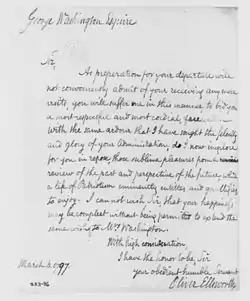 George Washington Esquire
Sir,
As preparation for your departure will
not conveniently admit of your receiving any more
visits, you will suffer me in this manner to bid you
a most respectful and most cordial, farewell.
With the same ardour that I have sought the felicity
and glory of your Administration, do I now implore
for you in repose, those sublime pleasures
review of the past and perspective of the future, which
a life of Patriotism eminently entitles and qualifies
to enjoy. I can not wish Sir that your happiness
may be compleat without being permitted to extend the
same wish to Mrs Washington.
With high consideration,
I have the honor to be, Sir
your obedient humble Servant
March 97.
Oliver Ellsworth